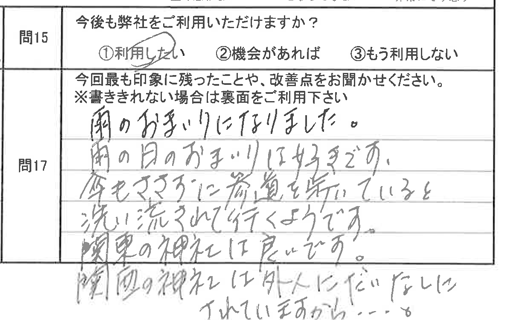 問15
今後も弊社をご利用いただけますか？
①利用したい ②機会があれば ③もう利用しない
問17
今回最も印象に残ったことや、改善点をお聞かせください。
※書ききれない場合は裏面をご利用下さい
雨のおまいりになりました。
雨の日のおまいりは好きです、
傘もささずに参道を歩いていると
洗い流されて行くようです。
関東の神社は良いです。
関西の神社は外人にだいなしに
されていますから・・・。